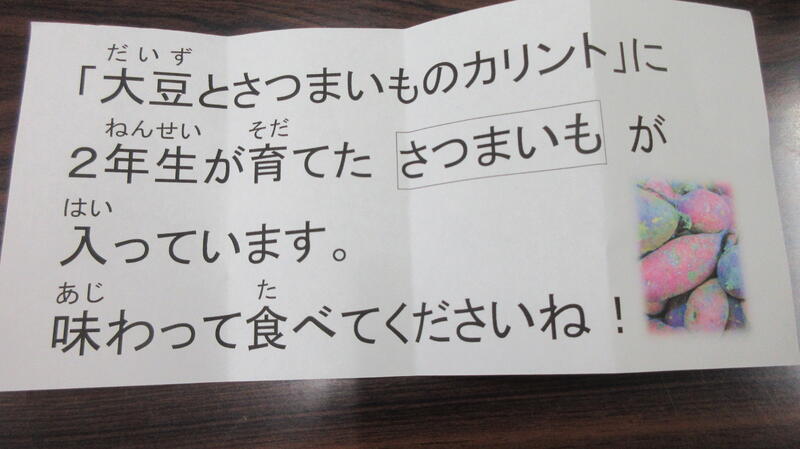 だいず
「大豆とさつまいものカリント」に
ねんせい そだ
２年生が育てた さつまいも が
はい
入っています。
あじ た
味わって食べてくださいね！